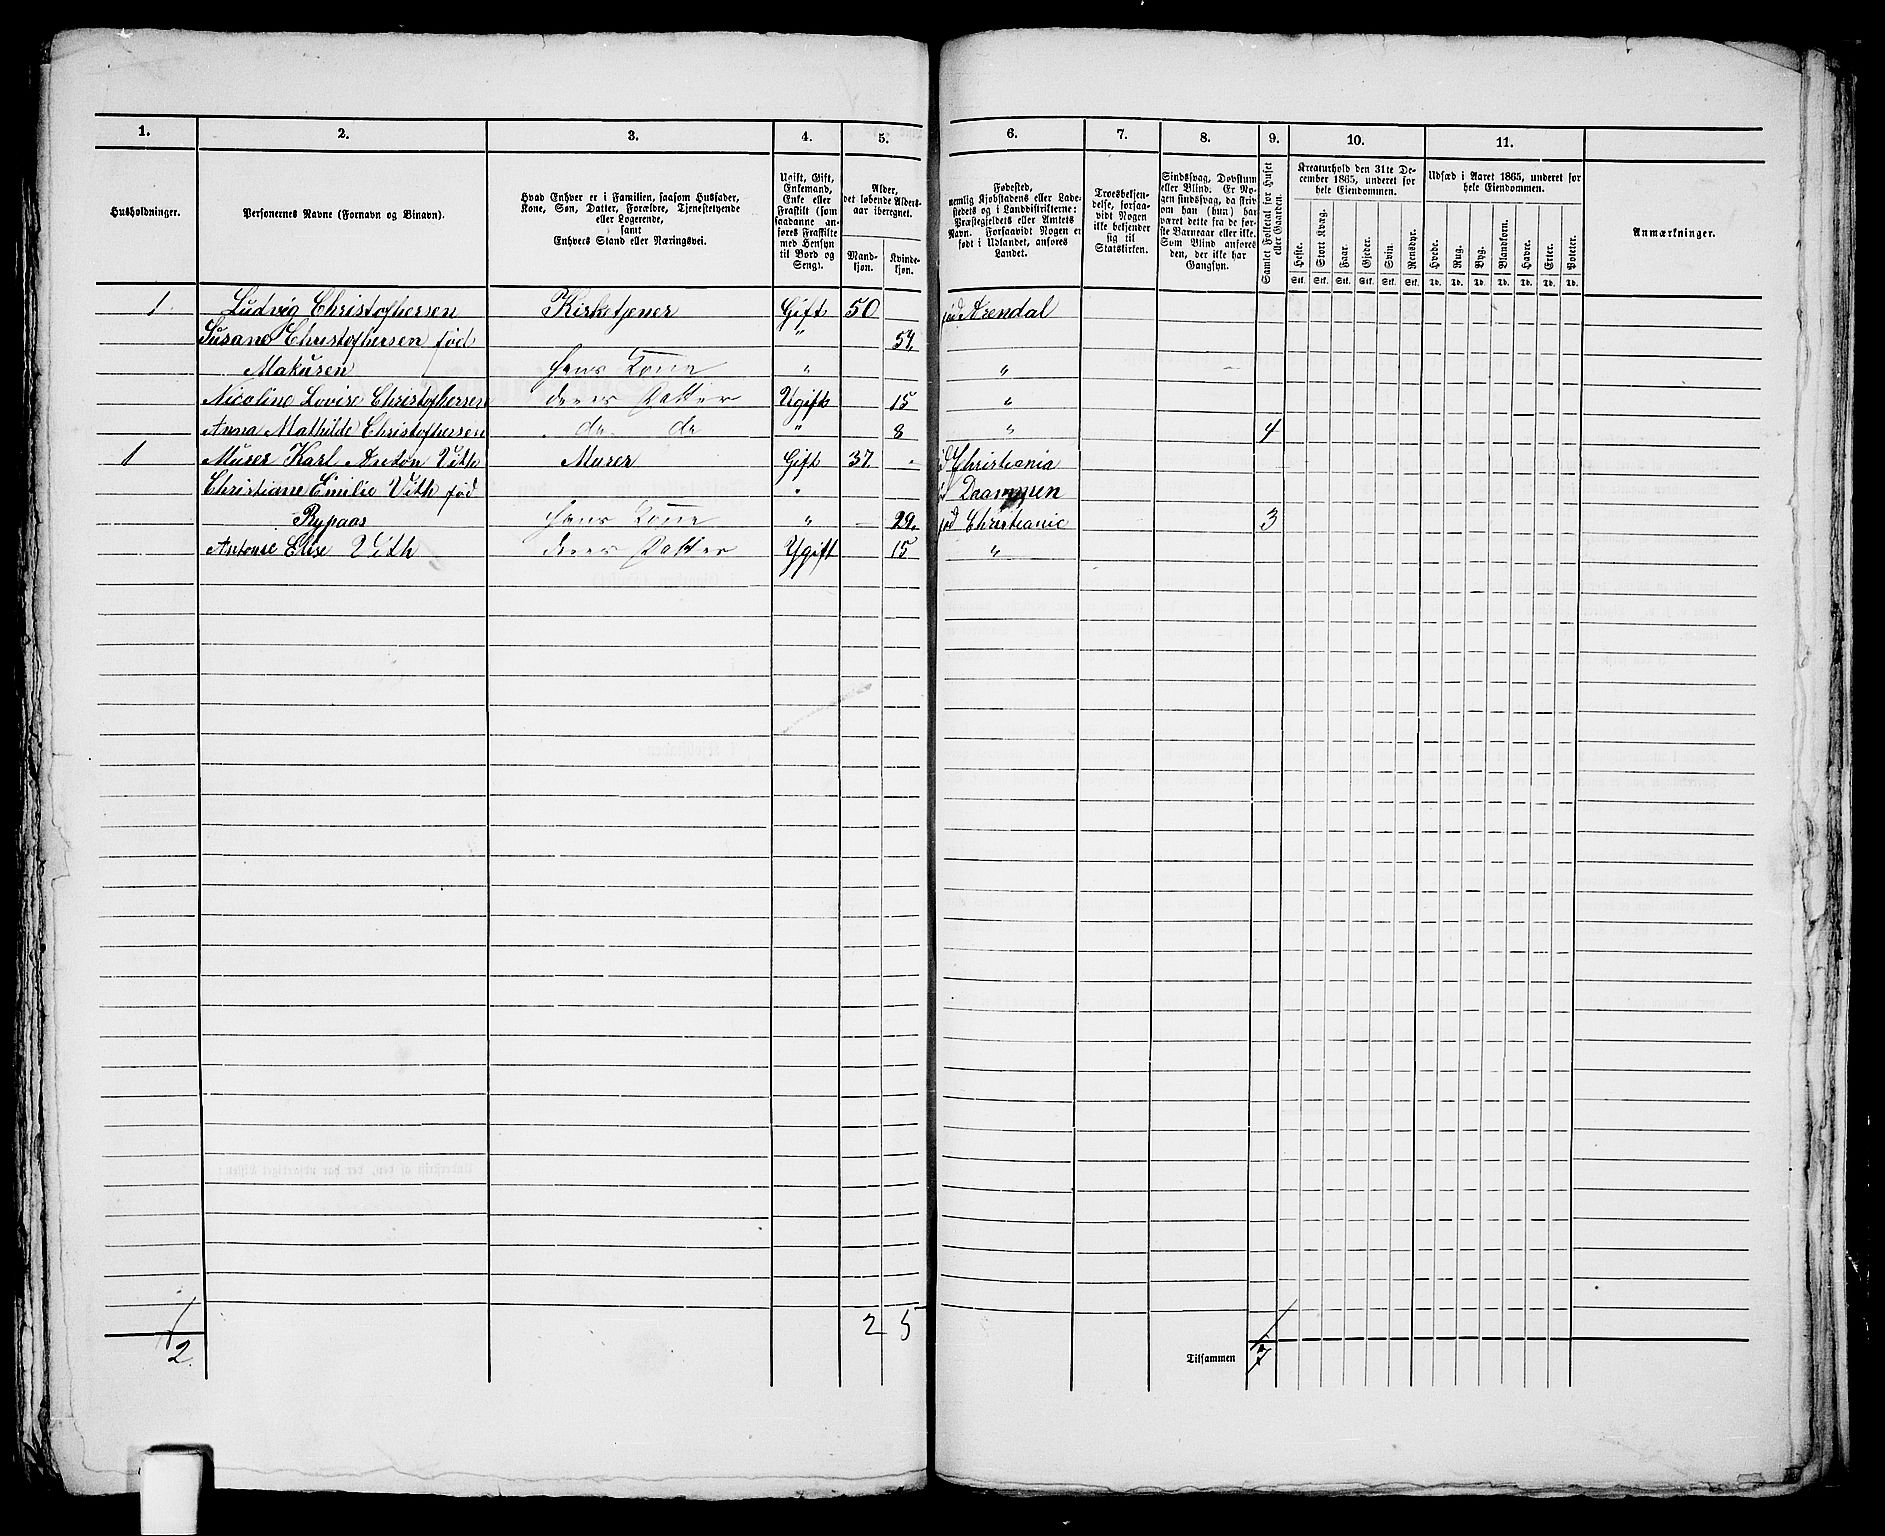 1. 2. 3. 4. 5. 6. 7. 8. 9. 10. 11.
Husholdninger.
Personernes Navne (Fornavn og Binavn).
Hvad Enhver er i Familien, saasom Husfader,
Kone, Søn, Datter, Forældre, Tjenestetyende
eller Logerende,
samt
Enhvers Stand eller Næringsvei.
Ugift, Gift,
Enkemand,
Enke eller
Fraskilt (som
saadanne an-
føres Fraskilte
med Hensyn
til Bord og
Seng).
Alder,
det løbende Alders-
aar iberegnet.
Mand-
kjøn.
Kvinde-
kjøn.
Fødested,
nemlig Kjøbstadens eller Lade-
stedets og i Landdistrikterne:
Præstegjeldets eller Amtets
Navn. Forsaavidt Nogen er
født i Udlandet, anføres
Landet.
Troesbekjen-
delse, forsaa-
vidt Nogen
ikke bekjender
sig til
Statskirken.
Sindssvag, Døvstum
eller Blind. Er No-
gen sindssvag, da skriv
om han (hun) har
været dette fra de før-
ste Barneaar eller ikke.
Som Blind anføres
den, der ikke har
Gangsyn.
Samlet Folketal for Huset
eller Gaarden.
Kreaturhold den 31te De-
cember 1865, underet for
hele Eiendommen.
Heste. Stort Kvæg. Faar. Gjeder. Svin. Rensdyr.
Stk. Stk. Stk. Stk. Stk. Stk.
Udsæd i Aaret 1865, underet for
hele Eiendommen.
Hvede. Rug. Byg. Blandkorn. Havre. Erter. Poteter.
Td. Td. Td. Td. Td. Td. Td.
Anmærkninger.
1 Ludvig Christofhersen Kirketjener Gift 50 fød Arendal
Susane Christofhersen fød " 54
Makusen Hans Kone " "
Nicoline Lovise Christofhersen deres Datter Ugift 15 "
Anna Mathilde Christofhersen do do " 8 " 4
1 Murer Karl Anton Vith Murer Gift 37 Christiania
Christiane Emilie Vith fød " Drammen
Rypaas Hans Kone " 29. fød Christianie 3
Antonie Elise Vith deres Datter Ygift 15 "
2 2 5
Tilsammen 7